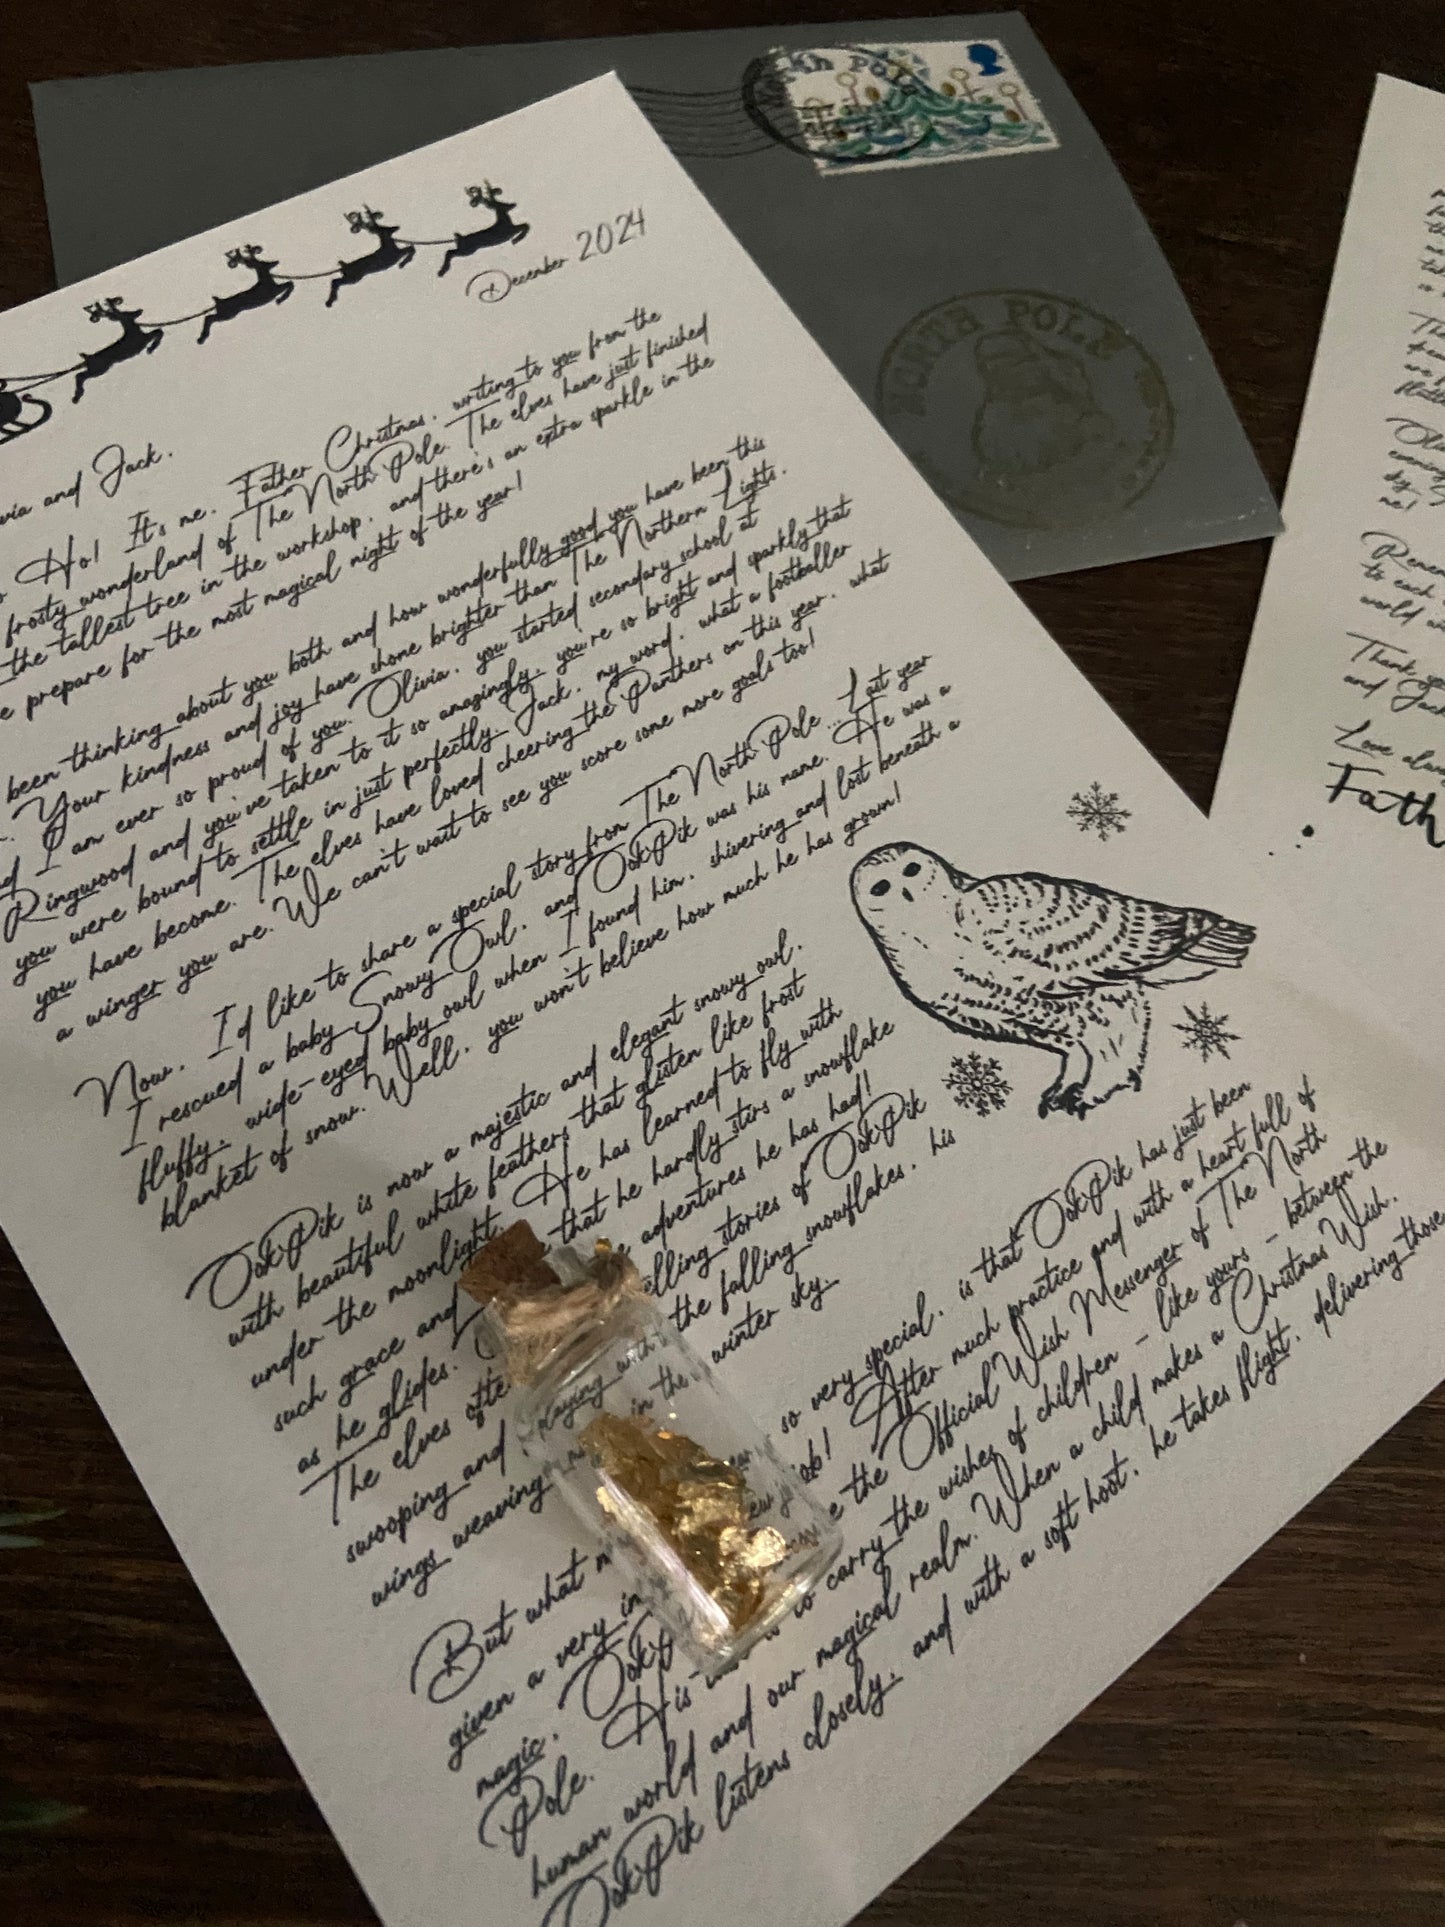 NORTH POLE
NORTH POLE
December 2024
and Jack,
Ho! It's me, Father Christmas, writing to you from the
frosty wonderland of The North Pole. The elves have just finished
the tallest tree in the workshop, and there's an extra sparkle in the
prepare for the most magical night of the year!
been thinking about you both and how wonderfully good you have been this
Your kindness and joy have shone brighter than The Northern Lights,
I am ever so proud of you. Olivia, you started secondary school at
Ringwood and you've taken to it so amazingly, you're so bright and sparkly that
you were bound to settle in just perfectly. Jack, my word, what a footballer
you have become. The elves have loved cheering the Panthers on this year, what
a winger you are. We can't wait to see you score some more goals too!
Now, I'd like to share a special story from The North Pole... Last year
I rescued a baby Snowy Owl, and OokPik was his name. He was a
fluffy, wide-eyed baby owl when I found him, shivering and lost beneath a
blanket of snow. Well, you won't believe how much he has grown!
OokPik is now a majestic and elegant snowy owl,
with beautiful white feathers that glisten like frost
under the moonlight. He has learned to fly with
such grace and that he hardly stirs a snowflake
as he glides. adventures he has had!
The elves stories of OokPik
swooping and playing with the falling snowflakes, his
wings weaving in the winter sky.
But what so very special, is that OokPik has just been
given a very job! After much practice and with a heart full of
magic, the Official Wish Messenger of The North
Pole. His to carry the wishes of children - like yours - between the
human world and our magical realm. When a child makes a Christmas Wish,
OokPik listens closely, and with a soft hoot, he takes flight, delivering those
me!
to each
world
Thank you
and Jack
Love
Fath